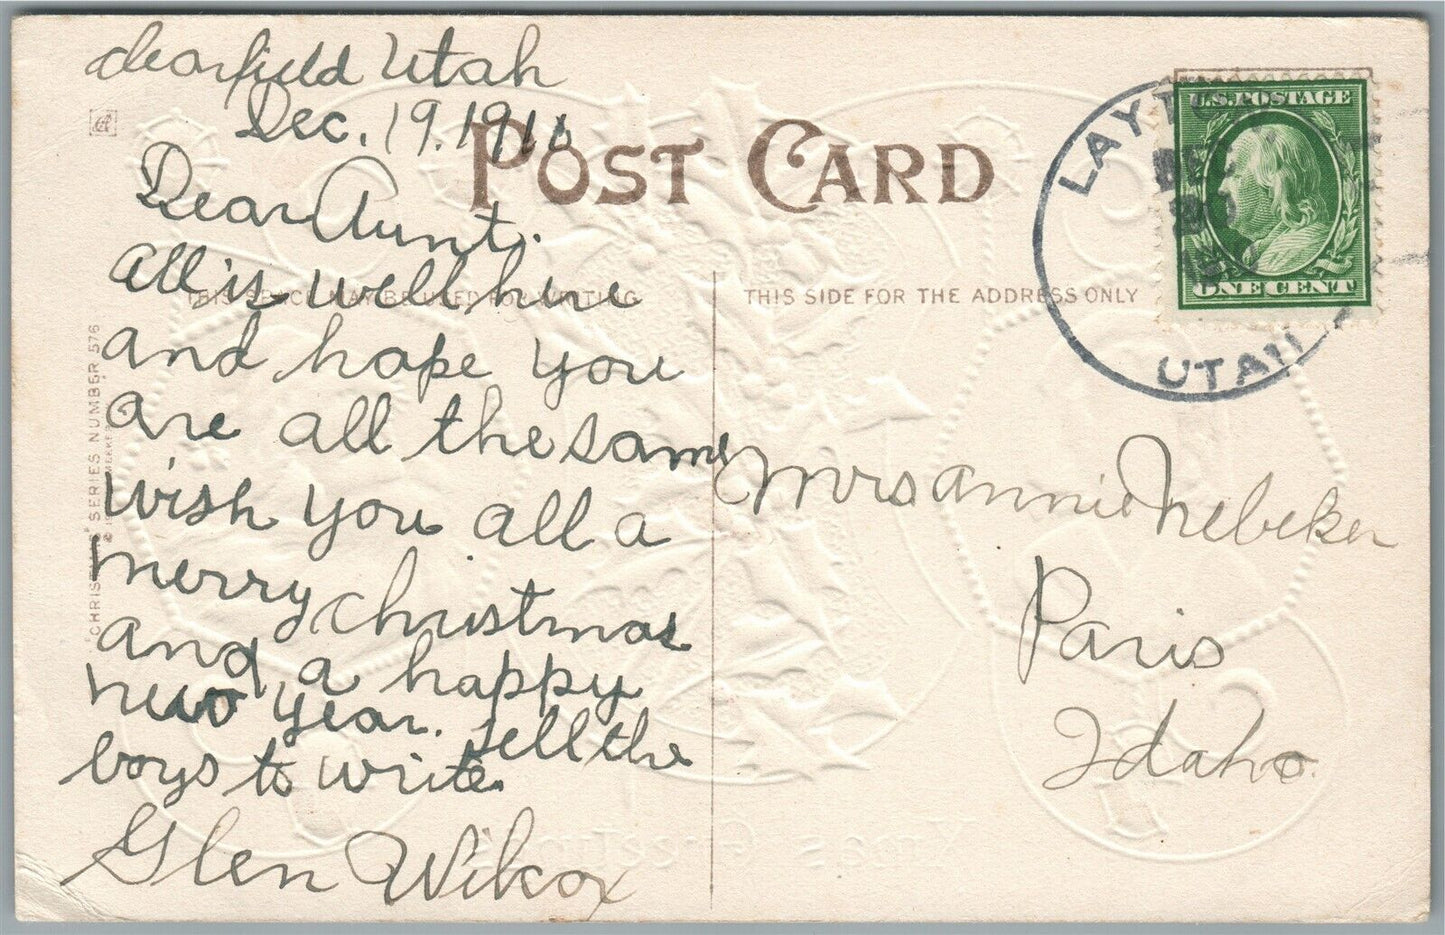 Clearfield Utah
Dec. 19. 1910
POST CARD
Dear Aunt:
THIS SPACE MAY BE USED FOR WRITING
THIS SIDE FOR THE ADDRESS ONLY
all is well here
and hope you
are all the same
wish you all a
merry christmas
and a happy
new year. tell the
boys to write.
Glen Wilcox
Mrs annie Nebeker
Paris
Idaho.
U.S. POSTAGE
ONE CENT
LAYTON
DEC
20
UTAH
"CHRISTMAS" SERIES NUMBER 576